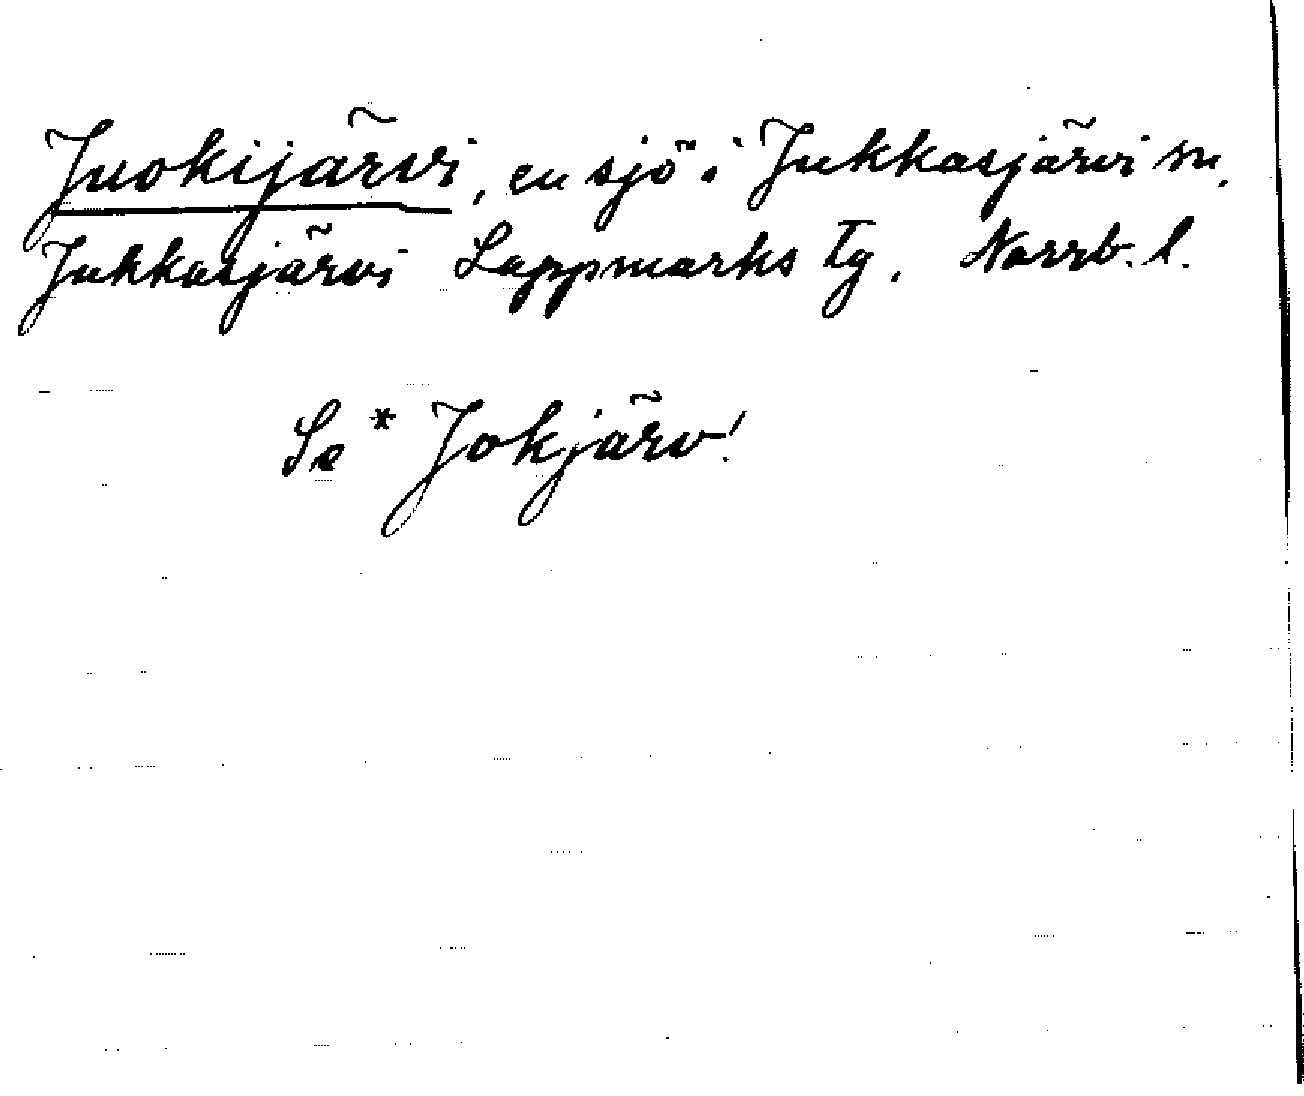 Juokijärvi, en sjö i Jukkasjärvi m.
Jukkasjärvi Lappmarks tg. Norrb. l.
Se * Jokjärv!